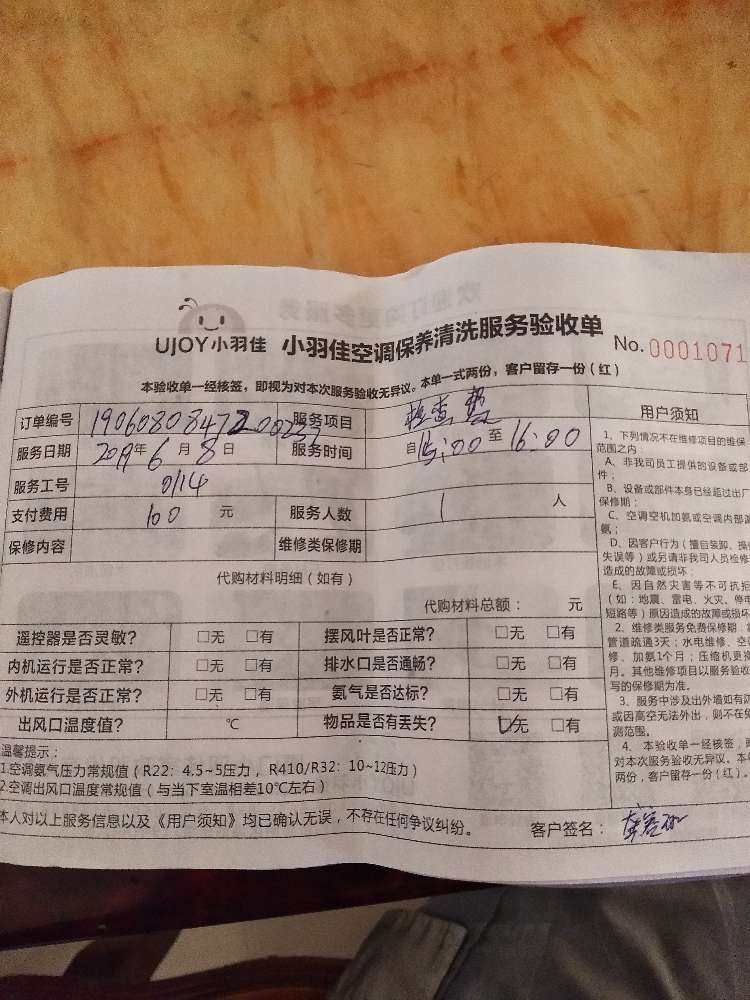 UJOY小羽佳 小羽佳空调保养清洗服务验收单 No.0001071
本验收单一经核签，即视为对本次服务验收无异议。本单一式两份，客户留存一份（红）
订单编号 服务项目 检查费
服务日期 2019年6月8日 服务时间 自15:00至16:00
服务工号 0114
支付费用 100 元 服务人数 1 人
保修内容 维修类保修期
代购材料明细（如有）
代购材料总额： 元
遥控器是否灵敏？ □无 □有 摆风叶是否正常？ □无 □有
内机运行是否正常？ □无 □有 排水口是否通畅？ □无 □有
外机运行是否正常？ □无 □有 氨气是否达标？ □无 □有
出风口温度值？ ℃ 物品是否有丢失？ ☑无 □有
温馨提示：
1.空调氨气压力常规值（R22：4.5~5压力， R410/R32：10~12压力）
2.空调出风口温度常规值（与当下室温相差10℃左右）
本人对以上服务信息以及《用户须知》均已确认无误，不存在任何争议纠纷。 客户签名：
用户须知
1、下列情况不在维修项目的维保
范围之内：
A、非我司员工提供的设备或部
件；
B、设备或部件本身已经超过出厂
保修期；
C、空调空机加氨或空调内部漏
氨；
D、因客户行为（擅自装卸、操
失误等）或另请非我司人员检修
造成的故障或损坏；
E、因自然灾害等不可抗拒
（如：地震、雷电、火灾、停电
短路等）原因造成的故障或损坏
2、维修类服务免费保修期：
管道疏通3天；水电维修、空
修、加氨1个月；压缩机更换
月。其他维修项目以服务验收
写的保修期为准。
3、服务中涉及出外墙如有
或因高空无法外出，则不在
测范围。
4、本验收单一经核签，
对本次服务验收无异议。本单
两份，客户留存一份（红）。